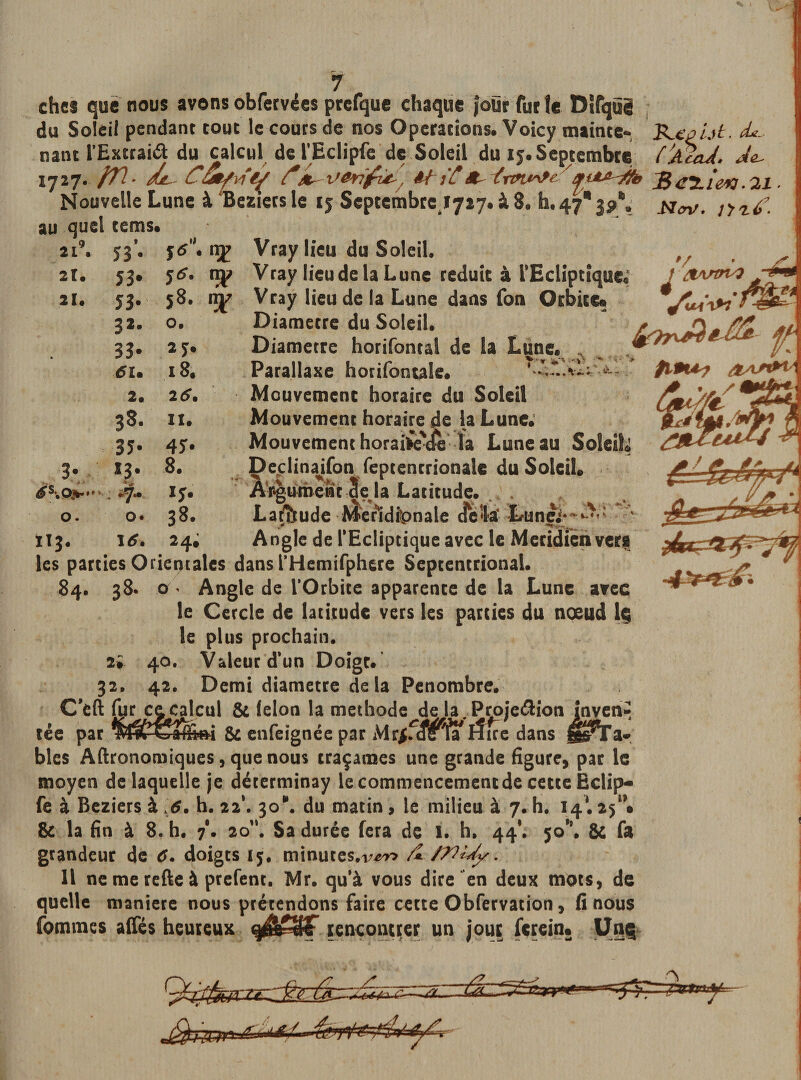 7
ches que nous avons observées presque chaque joûr sur le Disque
du Soleil pendant tout le cours de nos Operations. Voicy mainte-
nant l'Extraict du calcul de l'Eclipse de Soleil du 15. Septembre
1727. M. de Clapiés l'a verifié, et il a trouvé
Nouvelle Lune à Beziers le 15 Septembre 1727. à 8. h. 47" 39".
au quel tems.
21°. 53'. 56". ♍ Vray lieu du Soleil.
21. 53. 56. ♍ Vray lieu de la Lune reduit à l'Ecliptique.
21. 53. 58. ♍ Vray lieu de la Lune dans son Orbite.
32. 0. Diametre du Soleil.
33. 25. Diametre horisontal de la Lune.
61. 18. Parallaxe horisontale.
2. 26. Mouvement horaire du Soleil
38. 11. Mouvement horaire de la Lune.
35. 45. Mouvement horaire de la Lune au Soleil.
3. 13. 8. Declinaison septentrionale du Soleil.
6s. 0. 7. 15. Argument de la Latitude.
0. 0. 38. Latitude Meridionale de la Lune.
113. 16. 24. Angle de l'Ecliptique avec le Meridien vers
les parties Orientales dans l'Hemisphere Septentrional.
84. 38. 0. Angle de l'Orbite apparente de la Lune avec
le Cercle de latitude vers les parties du nœud le
le plus prochain.
2. 40. Valeur d'un Doigt.
32. 42. Demi diametre de la Penombre.
C'est sur ce calcul & selon la methode de la Projection inven-
tée par Mr. Cassini & enseignée par Mr. de la Hire dans ses Ta-
bles Astronomiques, que nous traçames une grande figure, par le
moyen de laquelle je déterminay le commencement de cette Eclip-
se à Beziers à 6. h. 22'. 30". du matin, le milieu à 7. h. 14'. 25".
& la fin à 8. h. 7'. 20". Sa durée sera de 1. h. 44'. 50". & sa
grandeur de 6. doigts 15. minutes. vers le Midy.
Il ne me reste à present. Mr. qu'à vous dire en deux mots, de
quelle maniere nous prétendons faire cette Observation, si nous
sommes assés heureux rencontrer un jour serein. Une
Regist. de
l'Acad. de
Bezier. 21.
Nov. 1726.
Distance de la Lune a la Terre 57. Demy
Diametres terrestres.